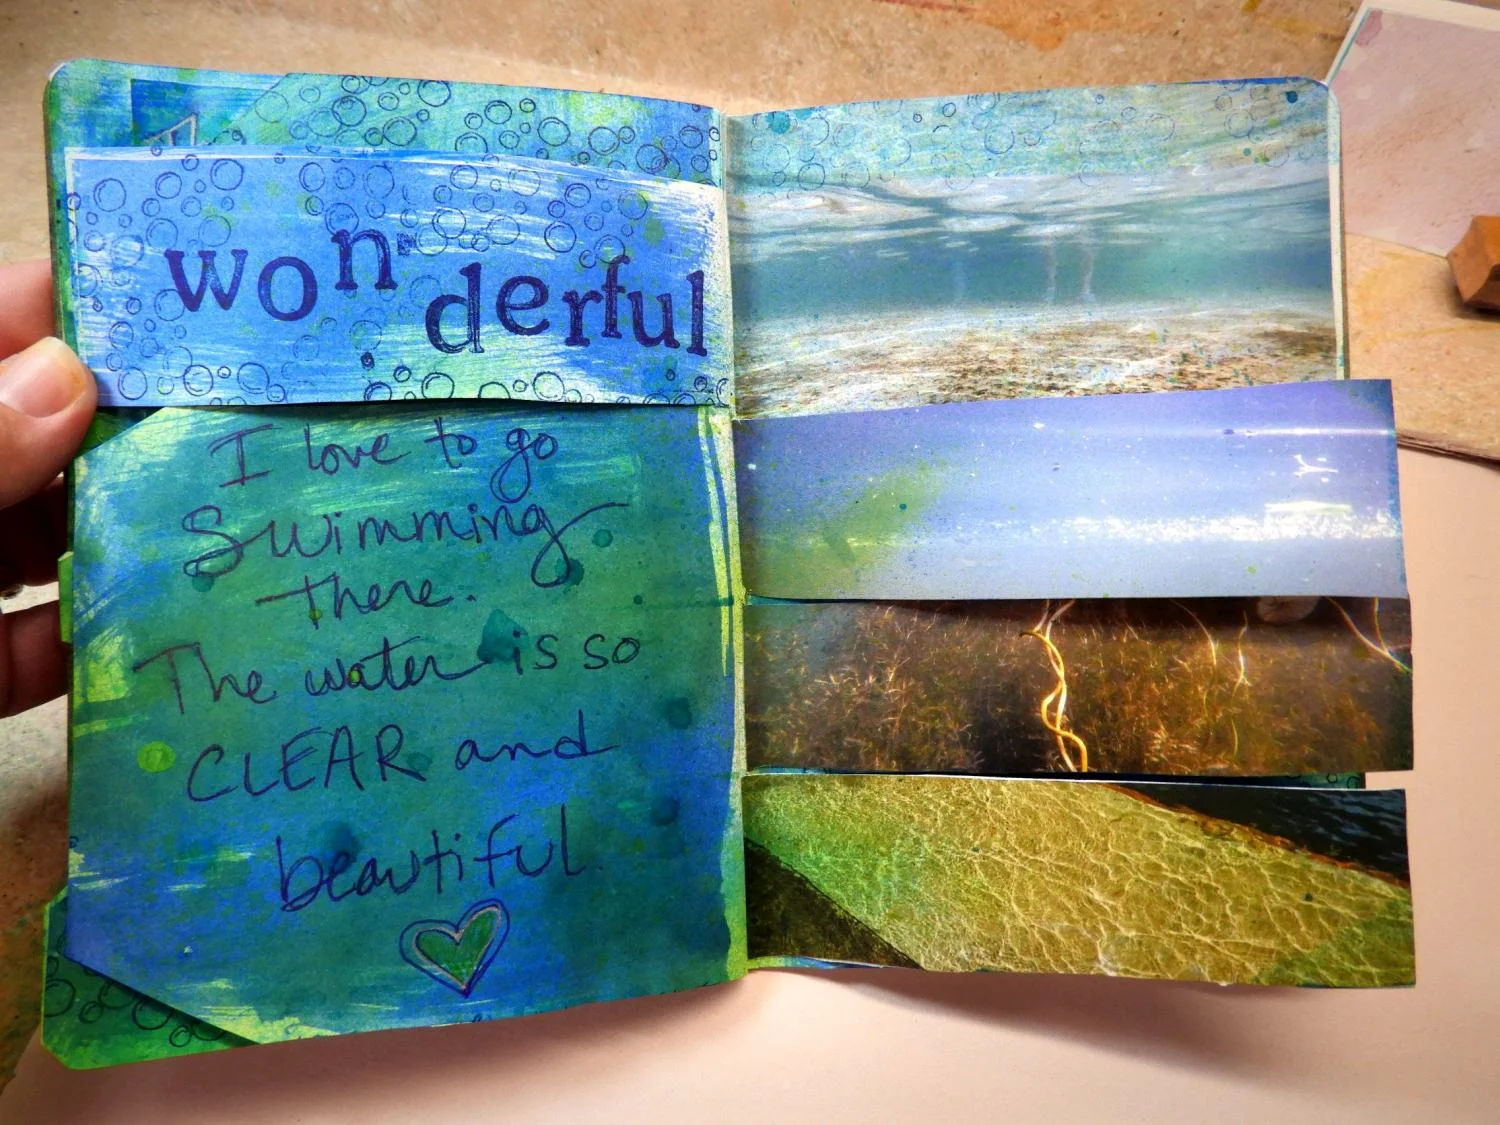 wonderful
I love to go
Swimming
there.
The water is so
CLEAR and
beautiful.